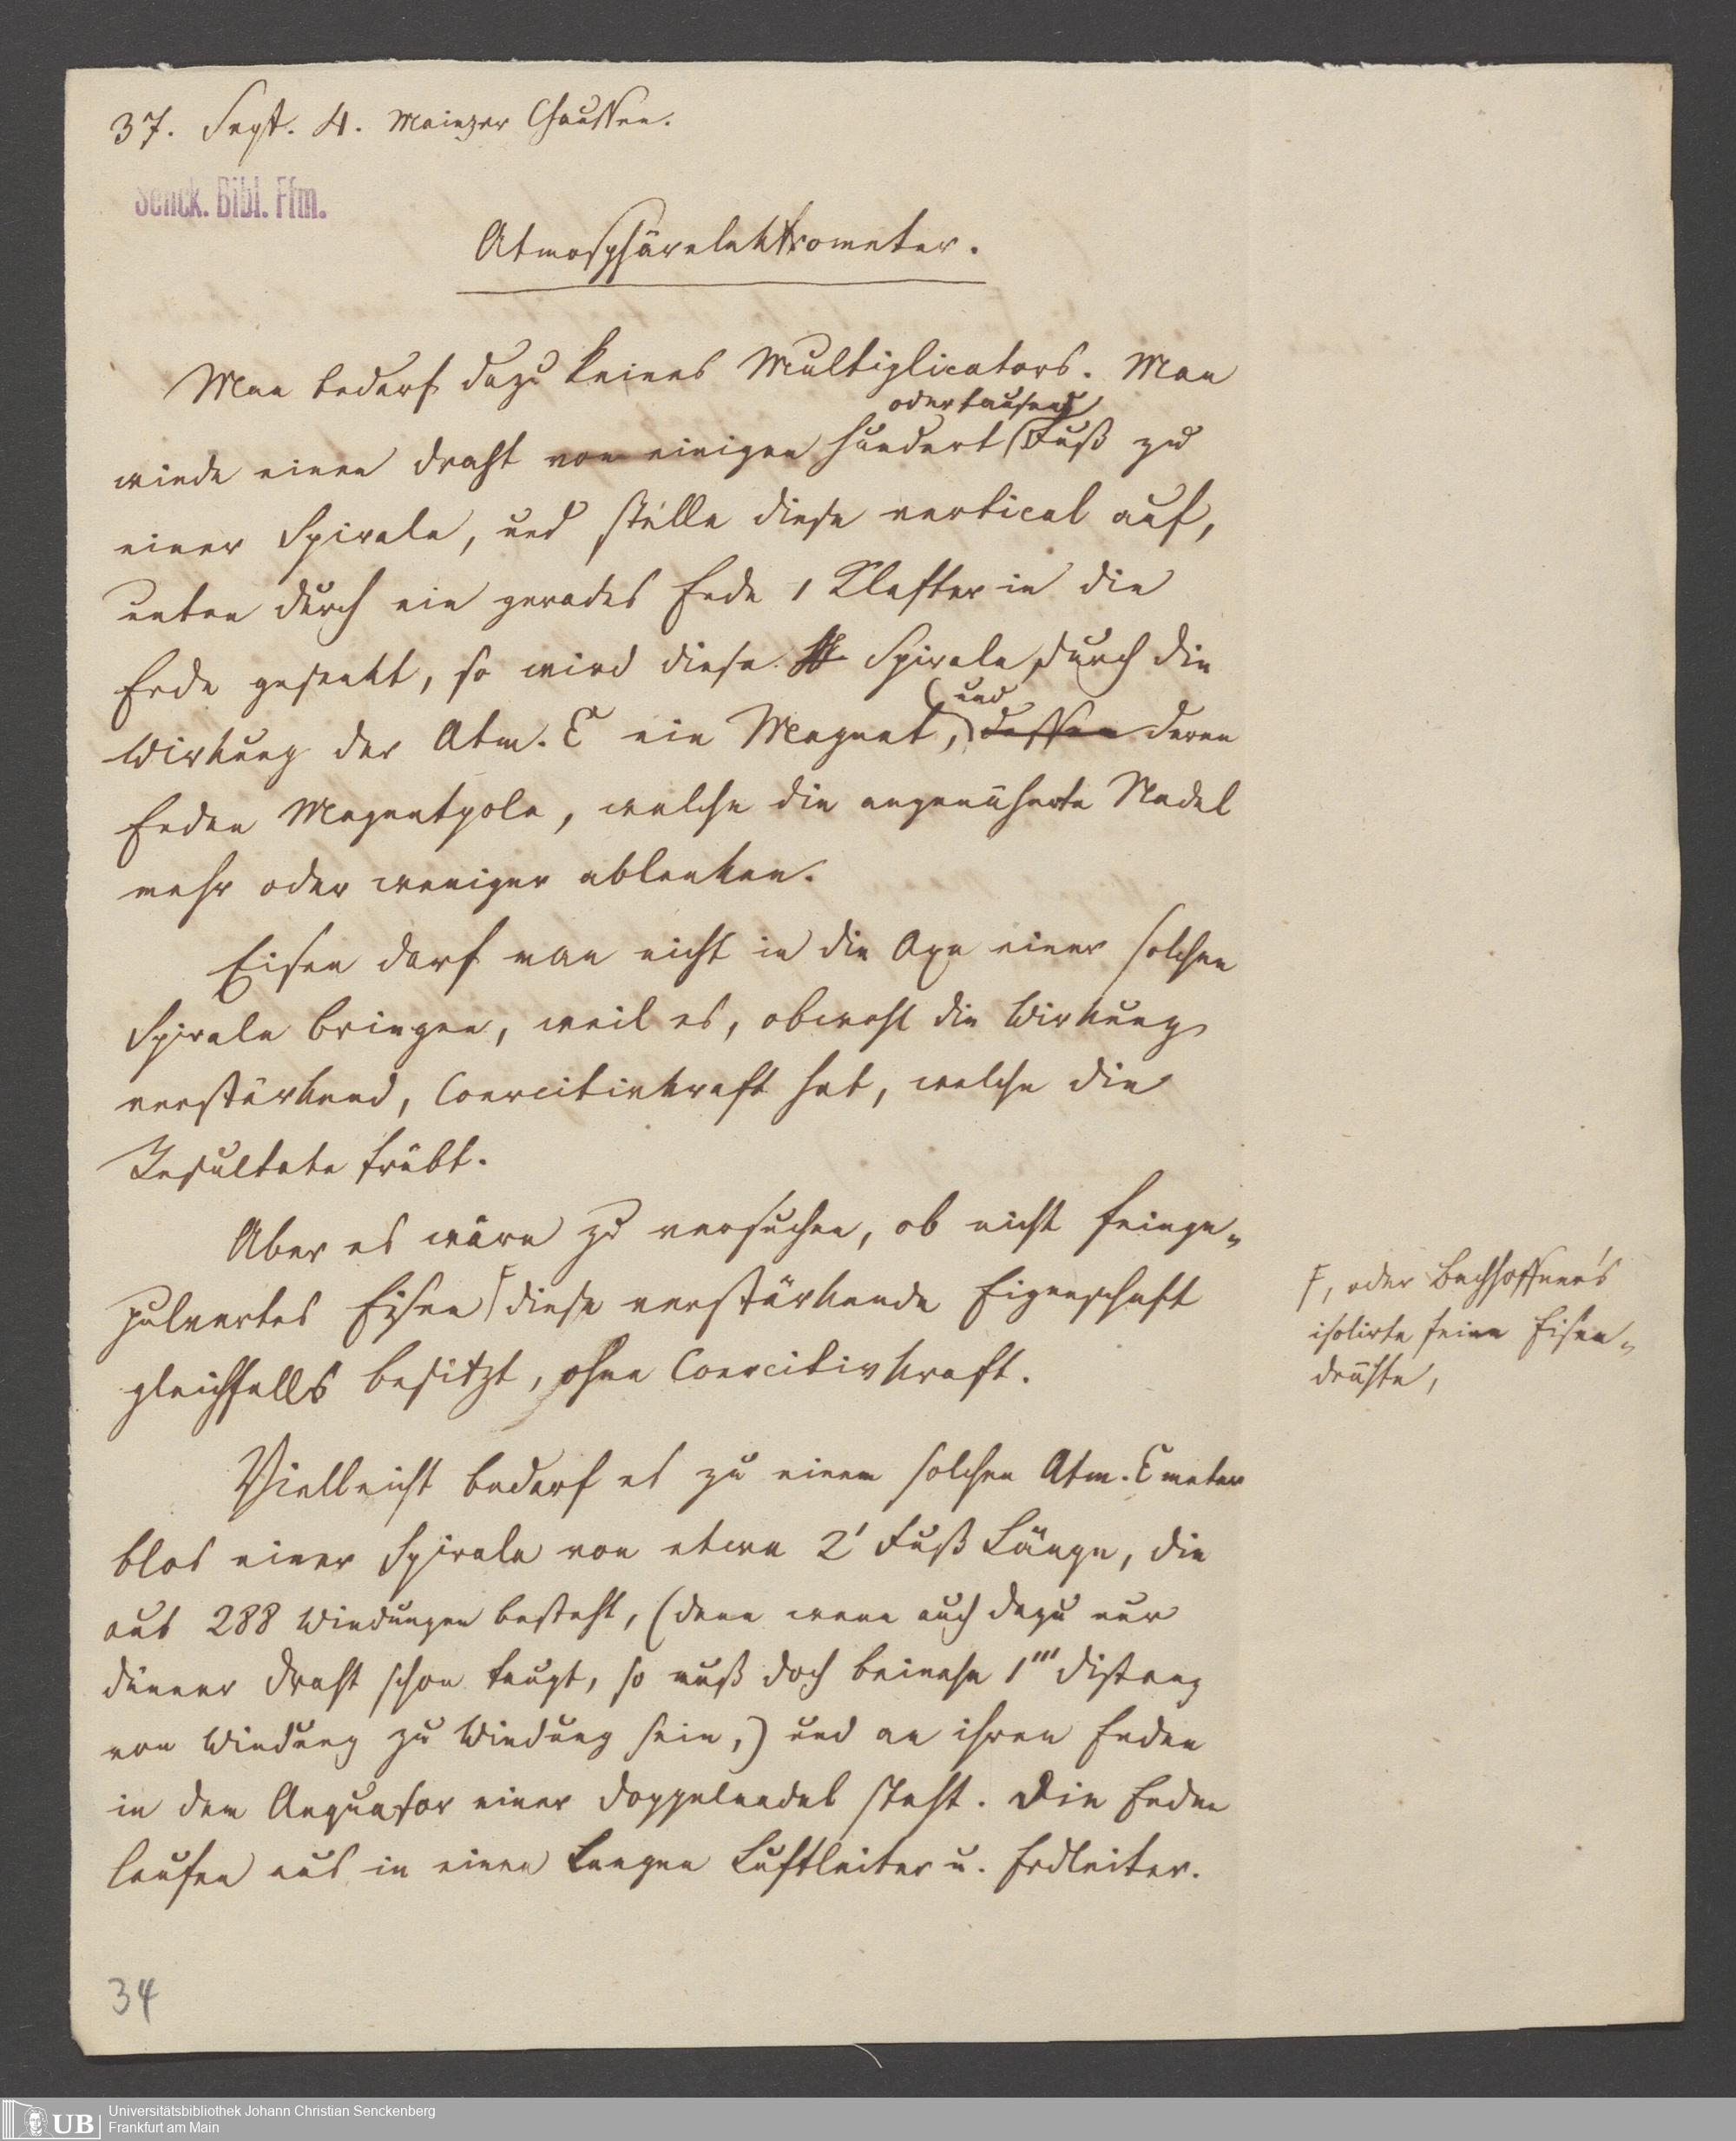 37. Sept. 4. Mainzer Chaussee.
Senck. Bibl. Ffm.
Atmosphärelektrometer.
Man bedarf dazu keines Multiplicators. Man
oder tausend
winde einen Draht von einigen hundert Fuß zu
einer Spirale, und stelle diese vertical auf,
unten durch ein gerades Ende 1 Klafter in die
Erde gesenkt, so wird diese Spirale durch die
und
Wirkung der Atm. E ein Magnet, dessen deren
Enden Magnetpole, welche die angenäherte Nadel
mehr oder weniger ablenken.
Eisen darf man nicht in die Axe einer solchen
Spirale bringen, weil es, obwohl die Wirkung
verstärkend, Coercitivkraft hat, welche die
Resultate trübt.
Aber es wäre zu versuchen, ob nicht feinge-
pulvertes Eisen diese verstärkende Eigenschaft
gleichfalls besitzt, ohne Coercitivkraft.
F, oder Bachhoffner's
isolirte feine Eisen-
drähte,
Vielleicht bedarf es zu einem solchen Atm. Emeter
blos einer Spirale von etwa 2' Fuß Länge, die
aus 288 Windungen besteht, (denn wenn auch dazu nur
dünner Draht schon taugt, so muß doch beinahe 1''' Distanz
von Windung zu Windung sein,) und an ihren Enden
in dem Aequator einer Doppelnadel steht. Die Enden
laufen aus in einen langen Luftleiter u. Erdleiter.
34
UB
Universitätsbibliothek Johann Christian Senckenberg
Frankfurt am Main